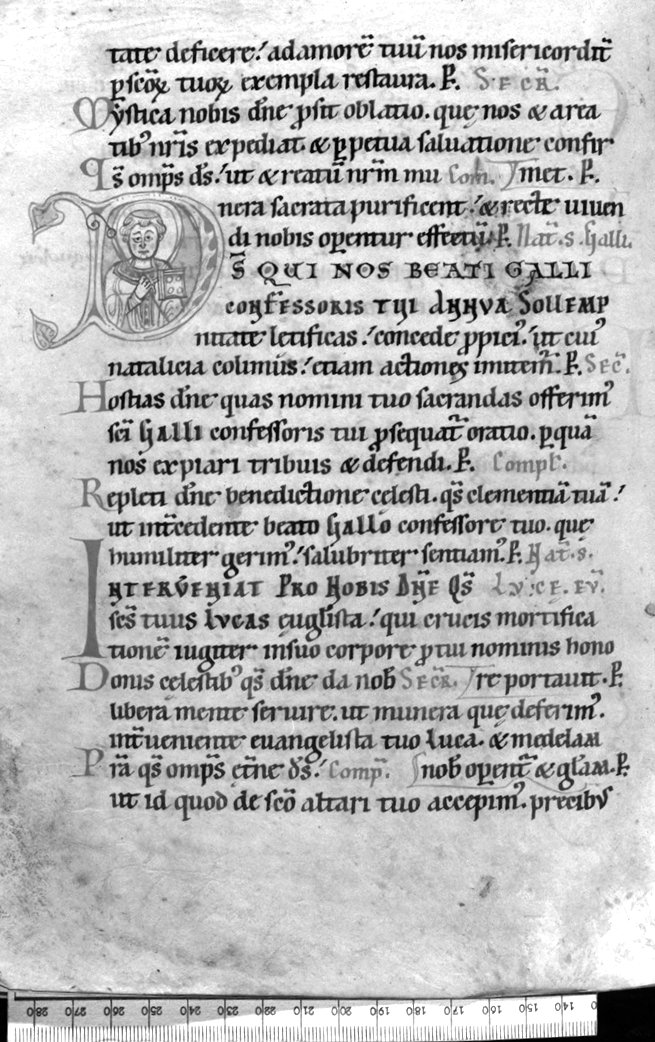 tate deficere. ad amorē tuū nos misericordit̄
p scōꝝ tuoꝝ exempla restaura. P. SECR̄.
Mystica nobis dn̄e ꝓsit oblatio. quę nos & area
tibꝰ nr̄is expediat. & ꝑpetua saluatione confir
Qs̄ omp̄s ds̄. ut & reatū nr̄m mu Com̄. met. P.
nera sacrata purificent. & recte uiuen
di nobis oꝑentur effectū. P. Nat̄. s. Galli.
Ds̄ QUI NOS BEATI GALLI
CONFESSORIS TUI ANNUA SOLLEMP
nitate letificas. concede ꝓpiciꝰ. ut cuiꝰ
natalicia colimus. etiam actiones imitem̄. P. SEC̄.
Hostias dn̄e quas nomini tuo sacrandas offerimꝰ
sc̄i GALLI confessoris tui ꝓsequat̄ oratio. ꝑ quā
nos expiari tribuis & defendi. P. Compl̄.
Repleti dn̄e benedictione celesti. qs̄ clementiā tuā.
ut int̄cedente beato Gallo confessore tuo. quę
humiliter gerimꝰ. salubriter sentiamꝰ. P. Nat̄. s.
INTERVENIAT PRO NOBIS DN̄E QS̄ LUCE. EV̄.
sc̄s tuus LUCAS euglista. qui crucis mortifica
tionē iugiter in suo corpore ꝓ tui nominis hono
Donis celestibꝰ qs̄ dn̄e da nob̄ SECR̄. re portauit. P.
libera mente seruire. ut munera quę deferimꝰ.
int̄ueniente euangelista tuo Luca. & medelam
Pr̄a qs̄ omp̄s et̄ne ds̄. Comp̄. nob̄ oꝑent̄ & gl̄am. P.
ut id quod de sc̄o altari tuo accepimꝰ. precibus
28 27 26 25 24 23 22 21 20 19 18 17 16 15 14